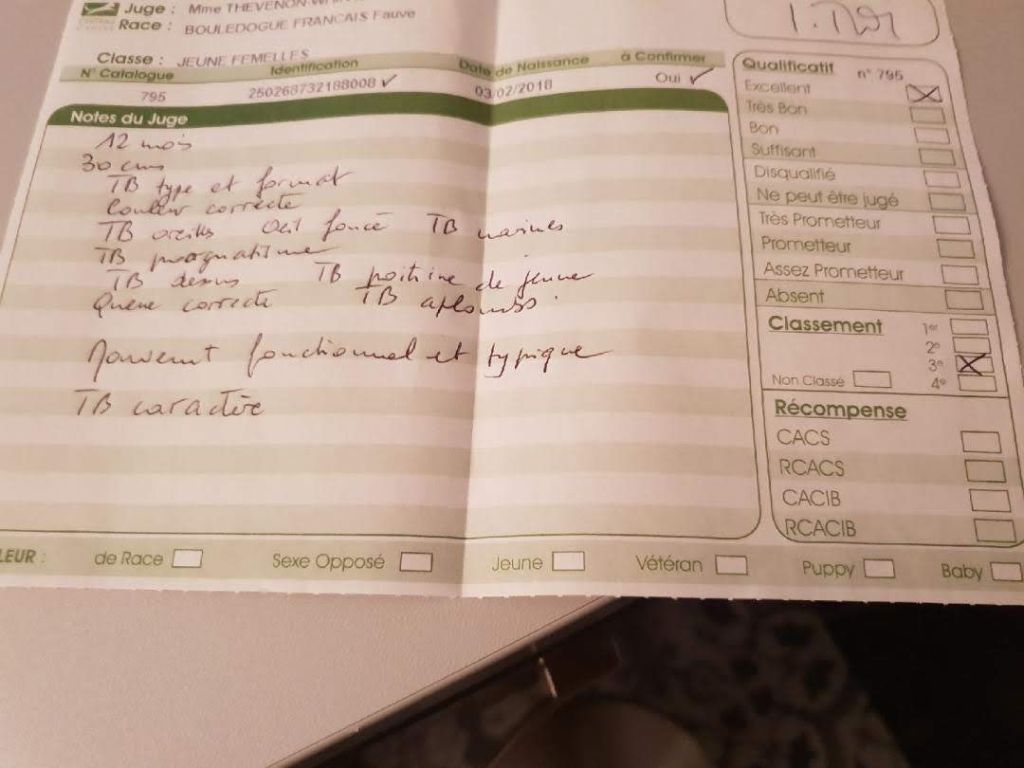 Juge : Mme THEVENON
Race : BOULEDOGUE FRANCAIS Fauve
Classe : JEUNE FEMELLES
N° Catalogue Identification Date de Naissance à Confirmer
795 250268732188008 ✓ 03/02/2018 Oui ✓
Notes du Juge
12 mois
30 cms
TB type et format
Couleur correcte
TB oreilles Oeil foncé TB narines
TB prognatisme
TB dessus TB poitrine de jeune
Queue correcte TB aplombs.
Mouvement fonctionnel et typique
TB caractère
Qualificatif n° 795
Excellent
Très Bon
Bon
Suffisant
Disqualifié
Ne peut être jugé
Très Prometteur
Prometteur
Assez Prometteur
Absent
Classement
1er
2e
3e
Non Classé 4e
Récompense
CACS
RCACS
CACIB
RCACIB
LEUR : de Race Sexe Opposé Jeune Vétéran Puppy Baby